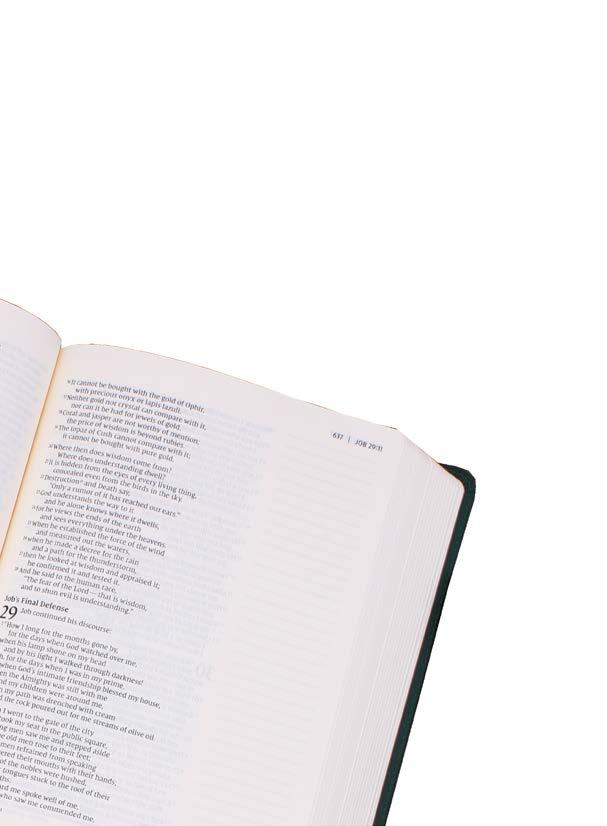 637 | JOB 29:11
16 It cannot be bought with the gold of Ophir,
with precious onyx or lapis lazuli.
17 Neither gold nor crystal can compare with it,
nor can it be had for jewels of gold.
18 Coral and jasper are not worthy of mention;
the price of wisdom is beyond rubies.
19 The topaz of Cush cannot compare with it;
it cannot be bought with pure gold.
20 Where then does wisdom come from?
Where does understanding dwell?
21 It is hidden from the eyes of every living thing,
concealed even from the birds in the sky.
22 Destruction and Death say,
"Only a rumor of it has reached our ears."
23 God understands the way to it
and he alone knows where it dwells,
24 for he views the ends of the earth
and sees everything under the heavens.
25 When he established the force of the wind
and measured out the waters,
26 when he made a decree for the rain
and a path for the thunderstorm,
27 then he looked at wisdom and appraised it;
he confirmed it and tested it.
28 And he said to the human race,
"The fear of the Lord — that is wisdom,
and to shun evil is understanding."
Job's Final Defense
29 Job continued his discourse:
2 "How I long for the months gone by,
for the days when God watched over me,
when his lamp shone on my head
and by his light I walked through darkness!
for the days when I was in my prime,
when God's intimate friendship blessed my house,
the Almighty was still with me
my children were around me,
my path was drenched with cream
the rock poured out for me streams of olive oil
I went to the gate of the city
took my seat in the public square,
men saw me and stepped aside
old men rose to their feet;
men refrained from speaking
their mouths with their hands;
of the nobles were hushed,
tongues stuck to the roof of their
heard me spoke well of me,
who saw me commended me,